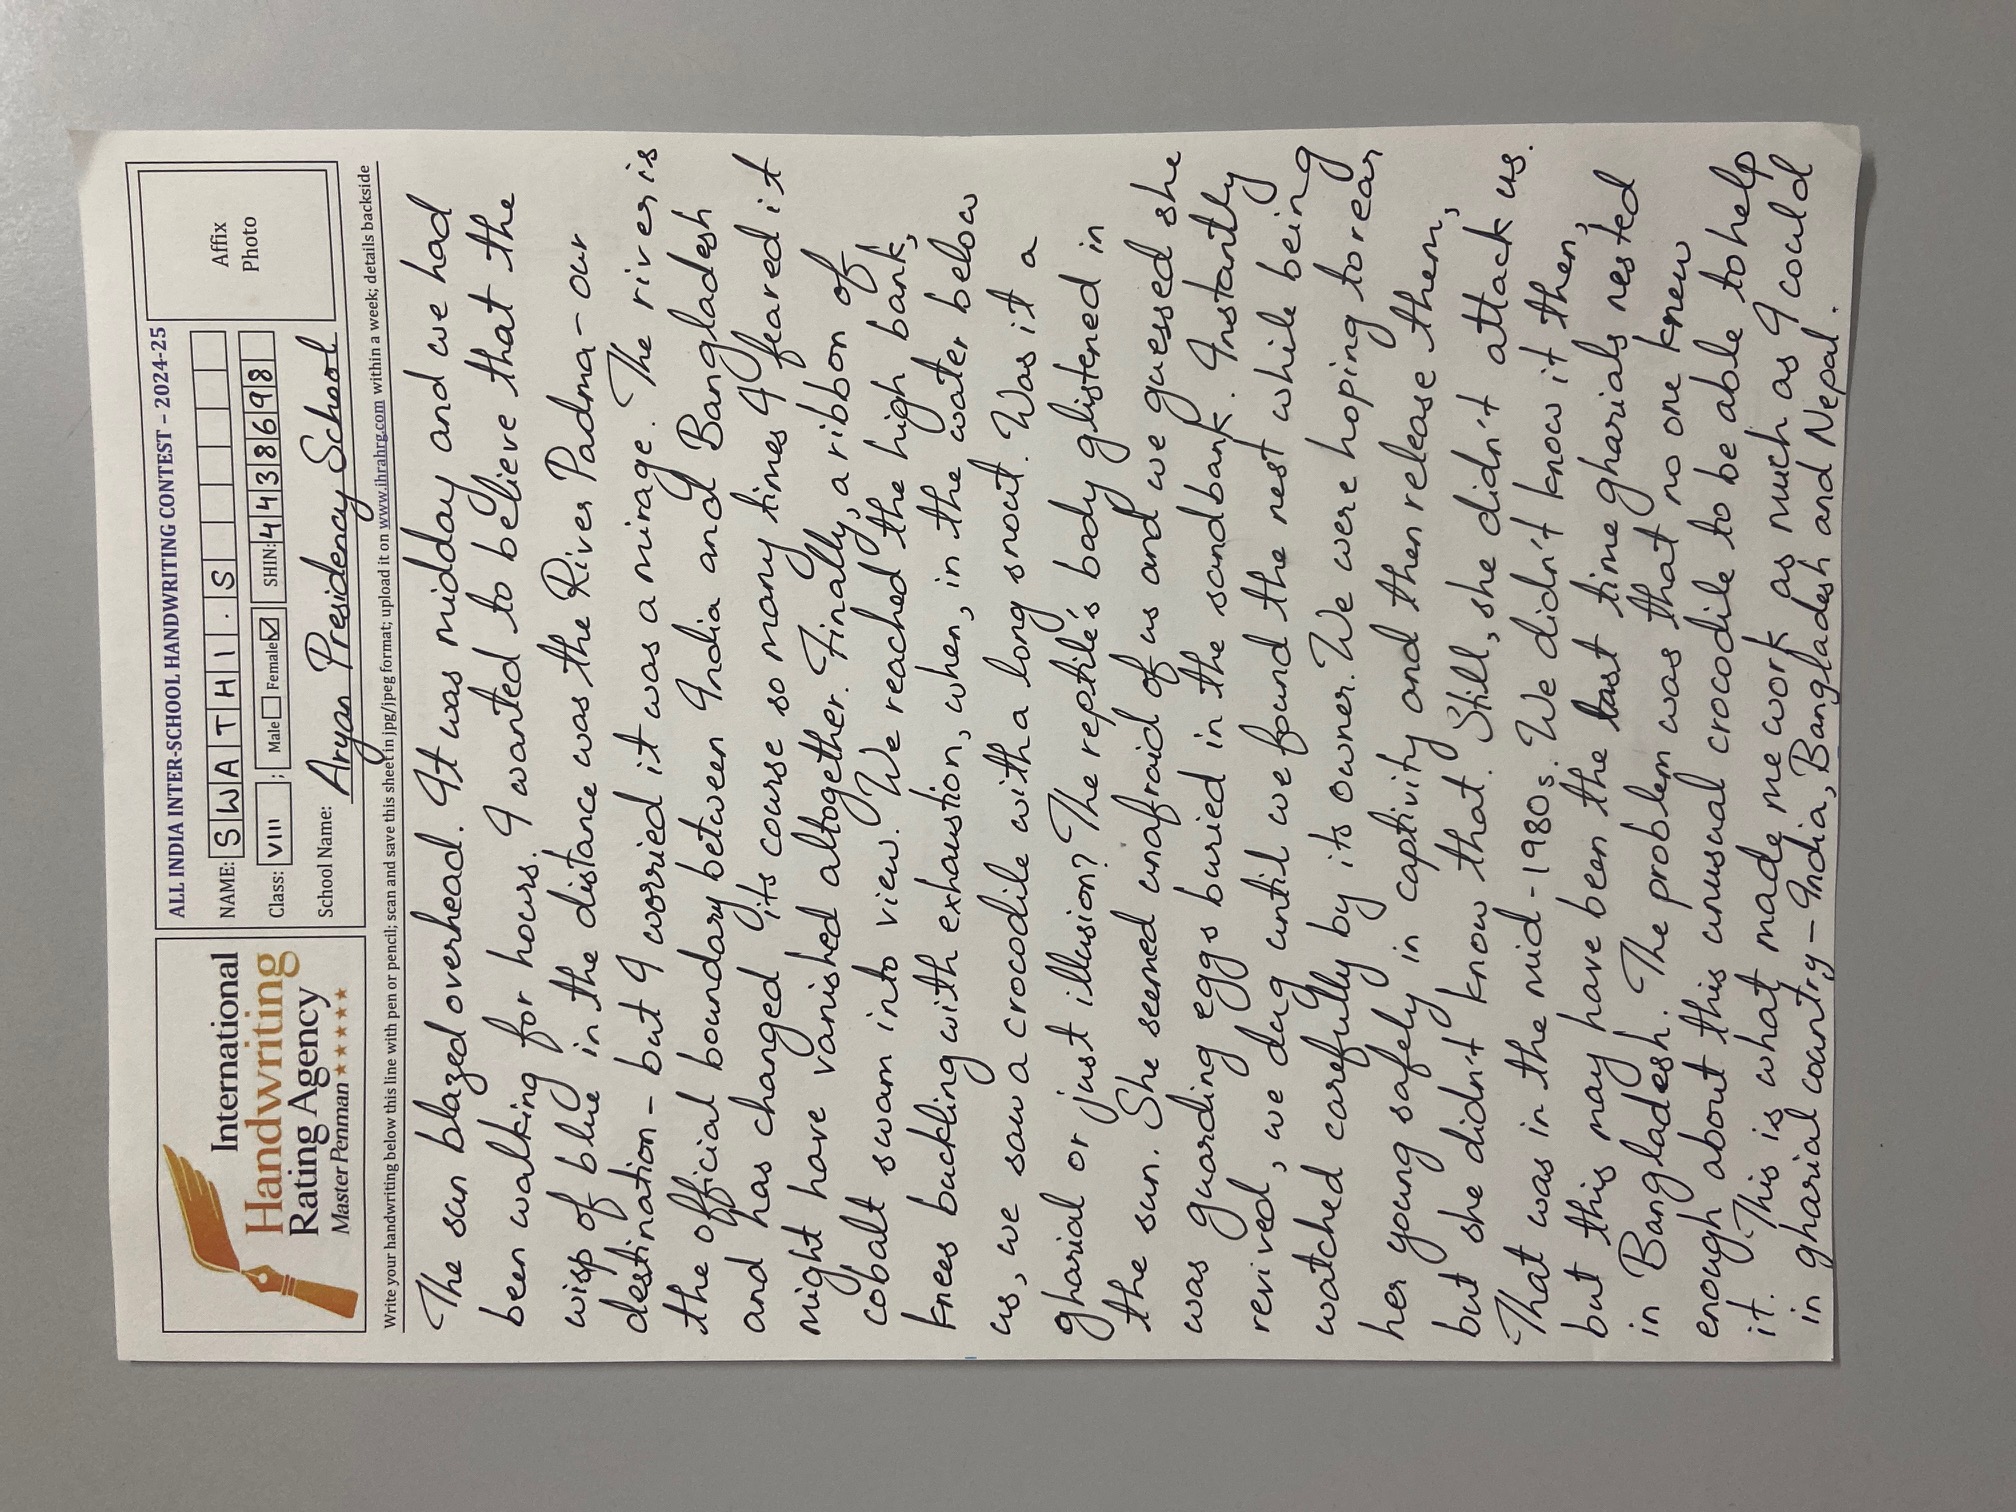 International
Handwriting
Rating Agency
Master Penman ★★★★★★
ALL INDIA INTER-SCHOOL HANDWRITING CONTEST – 2024-25
NAME: SWATHI.S
Class: VIII ; Male☐ Female☑ SHIN: 44386698
School Name: Aryan Presidency School
Affix
Photo
Write your handwriting below this line with pen or pencil; scan and save this sheet in jpg/jpeg format; upload it on www.ihrahrg.com within a week; details backside
The sun blazed overhead. It was midday and we had
been walking for hours. I wanted to believe that the
wisp of blue in the distance was the River Padma – our
destination – but I worried it was a mirage. The river is
the official boundary between India and Bangladesh
and has changed its course so many times I feared it
might have vanished altogether. Finally, a ribbon of
cobalt swam into view. We reached the high bank,
knees buckling with exhaustion, when, in the water below
us, we saw a crocodile with a long snout. Was it a
gharial or just illusion? The reptile's body glistened in
the sun. She seemed unafraid of us and we guessed she
was guarding eggs buried in the sandbank. Instantly
revived, we dug until we found the nest while being
watched carefully by its owner. We were hoping to rear
her young safely in captivity and then release them,
but she didn't know that. Still, she didn't attack us.
That was in the mid-1980s. We didn't know it then,
but this may have been the last time gharials nested
in Bangladesh. The problem was that no one knew
enough about this unusual crocodile to be able to help
it. This is what made me work as much as I could
in gharial country – India, Bangladesh and Nepal.